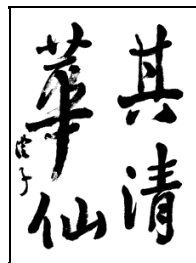 其清
華仙